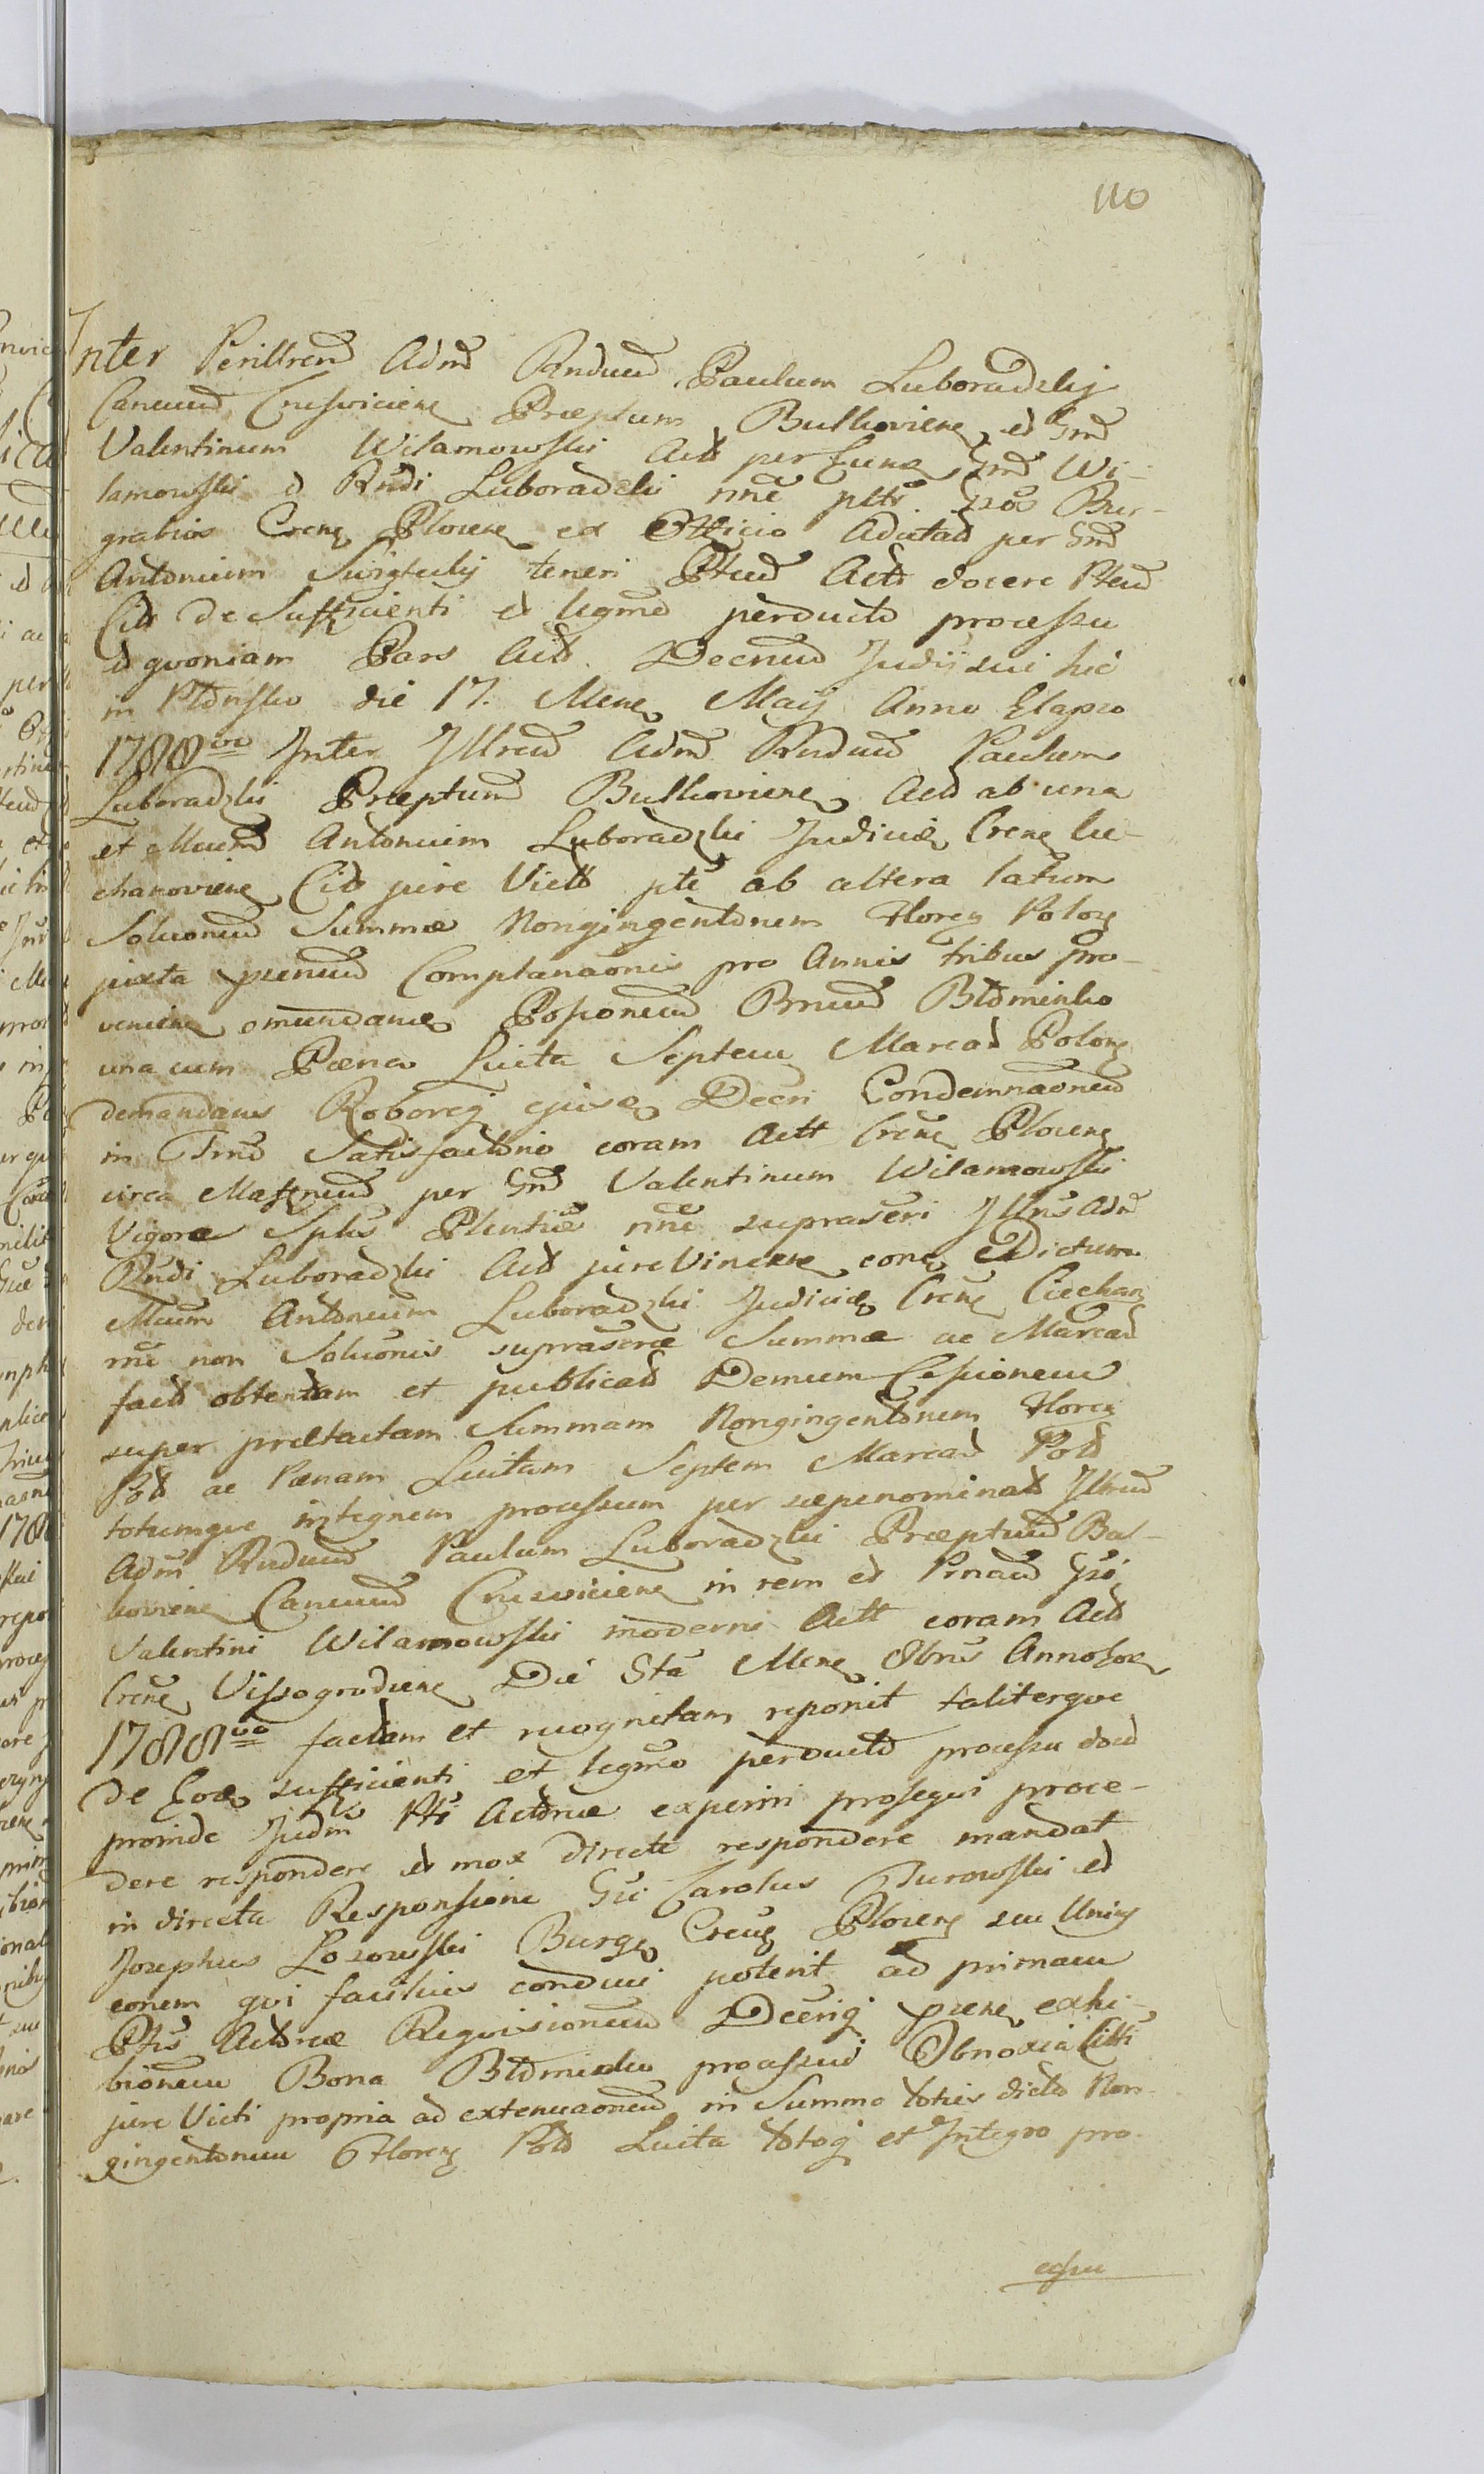 110
Inter Perillrem Adm Rndum Paulum Luboradzkij
Cancum Crusvicien Præptum Bulkovien et Gnd
Valentinum Wilamowski Act per Gnd Wi-
lamowski et Rndi Luboradzki nne ptts Bur-
grabios Cren Plocen ex Officio Adcitat per Gnd
Antonium teneri Ptem Act docere Ptem
Cit de Sufficienti et legmo perducto processu
et quoniam Pars Act Decrum Judii sui hic
in Płońsko die 17. Mens Maij Anno Elapso
1788vo Inter Illrem Adm Rndum Paulum
Luboradzki Præptum Bulkovien Act ab una
et Mcum Antonium Luboradzki Judicem Cren Cie-
chanovien Cit jure Vict pte ab altera latum
Solucionem Summæ Nongingentorum Floren Polon
juxta Complanaonis pro Annis tribus pro-
venien
una cum Pæna Luita Septem Marcar Polon
demandans Roborq ejusq Decri Condemnaonem
in Trno Satisfactorio coram Actt Cren Plocen
circa per Gnd Valentinum Wilamowski
Vigore Splis Plentiæ nne suprascri Illris Adm
Rndi Luboradzki Act jure Vincen con Dictum
Mcum Antonium Luboradzki Judicem Cren Ciechan
rne non Soluonis suprascræ Summæ ac Marcar
fact obtentam et publicat Demum Cessionem
super prætactam Summam Nongingentorum Floren
Pol ac Pænam Luitam Septem Marcar Pol
totumque integrum processum per sæpenominat Illrem
Adm Rndum Paulum Luboradzki Præptum Bul-
kovien Cancum Crusvicien in rem et Prnam Gsi
Valentini Wilamowski moderni Actt coram Act
Cren Vissogrodien Die 8ta Mens 8bris Anno
1788vo factam et recognitam reponit taliterque
de sufficienti et legmo perducto processu docet
proinde Judm Pti Actoreæ experiri prosequi proce-
dere respondere et mox directe respondere mandat
in directa Responsione Gsi Carolus Burowski et
Josephus Lozowski Burg Cren Plocen seu Unus
eorum qui facilius conduci poterit ad primam
Ptis Actoreæ Requisitionem Decriq exhi-
bionem Bona processui Obnoxia Citti
jure Victi propria ad extenuaonem in Summa toties dicta Non-
gingentorum Floren Pol Luita totoq et Integro pro-
cessu